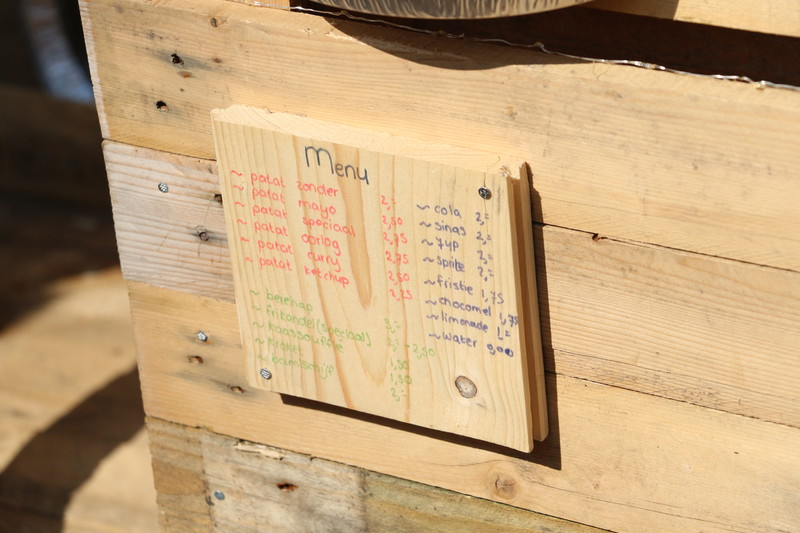 Menu
~ patat zonder 2,=
~ patat mayo 2,50
~ patat speciaal 2,75
~ patat oorlog 2,75
~ patat curry 2,50
~ patat ketchup 2,25
~ berehap 3,=
~ frikandel (speciaal) 2,= 2,50
~ kaassoufflé 1,50
~ kroket 1,50
~ bamischijf 2,=
~ cola 2,=
~ sinas 2,=
~ 7up 2,=
~ sprite 2,=
~ fristie 1,75
~ chocomel 1,75
~ limonade 1,=
~ water 0,00